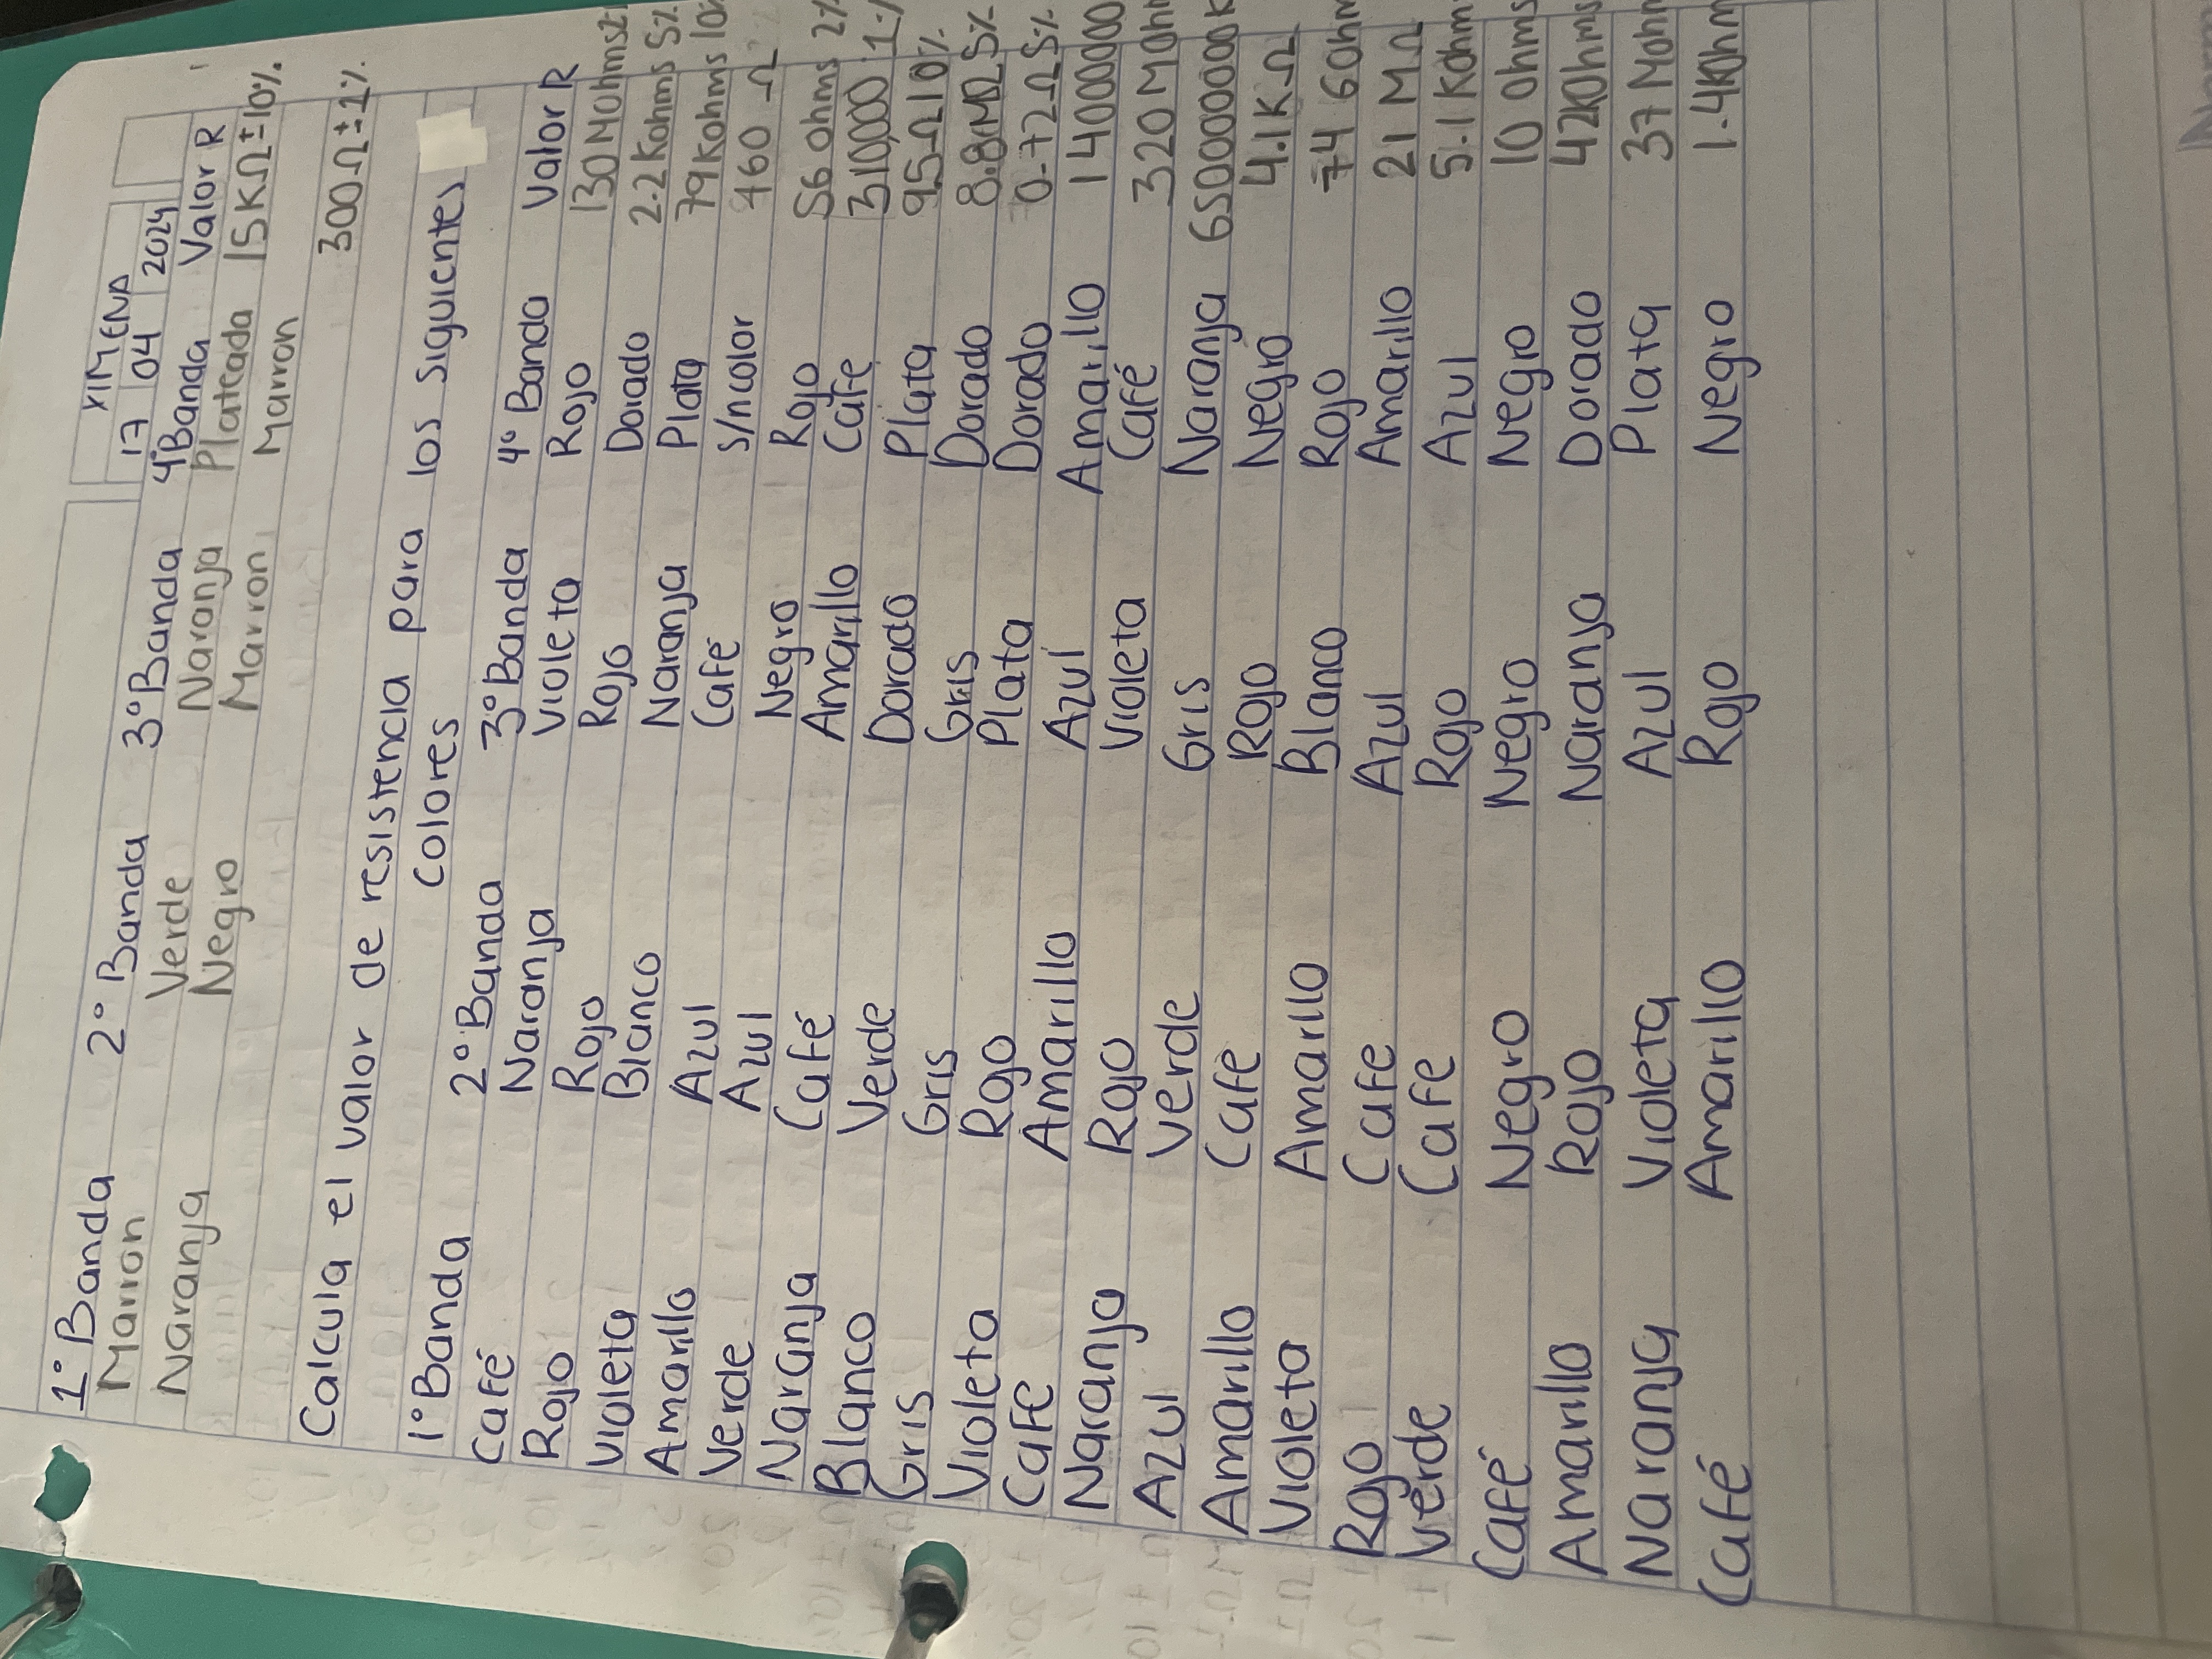 XIMENA
17 04 2024
1° Banda 2° Banda 3° Banda 4° Banda Valor R
Marron Verde Naranja Plateada 15KΩ±10%
Naranja Negro Marron Marron
300Ω±1%
Calcula el valor de resistencia para los siguientes
colores
1° Banda 2° Banda 3° Banda 4° Banda Valor R
Café Naranja Violeta Rojo 130 Mohms
Rojo Rojo Rojo Dorado 2.2 Kohms 5%
Violeta Blanco Naranja Plata 79Kohms 10%
Amarillo Azul Café s/ncolor 460 Ω
Verde Azul Negro Rojo 56 ohms 2%
Naranja Café Amarillo Café 310,000 1%
Blanco Verde Dorado Plata 9.5Ω10%
Gris Gris Gris Dorado 8.8MΩ5%
Violeta Rojo Plata Dorado 0.72Ω5%
Cafe Amarillo Azul Amarillo 14000000
Naranja Rojo Violeta Café 320 Mohm
Azul Verde Gris Naranja 6500000000K
Amarillo Cafe Rojo Negro 4.1KΩ
Violeta Amarillo Blanco Rojo 74 GOhm
Rojo Cafe Azul Amarillo 21 MΩ
Verde Cafe Rojo Azul 5.1Kohm
Café Negro Negro Negro 10 Ohms
Amarillo Rojo Naranja Dorado 42KOhms
Naranja Violeta Azul Plata 37 Mohm
Café Amarillo Rojo Negro 1.4KOhm